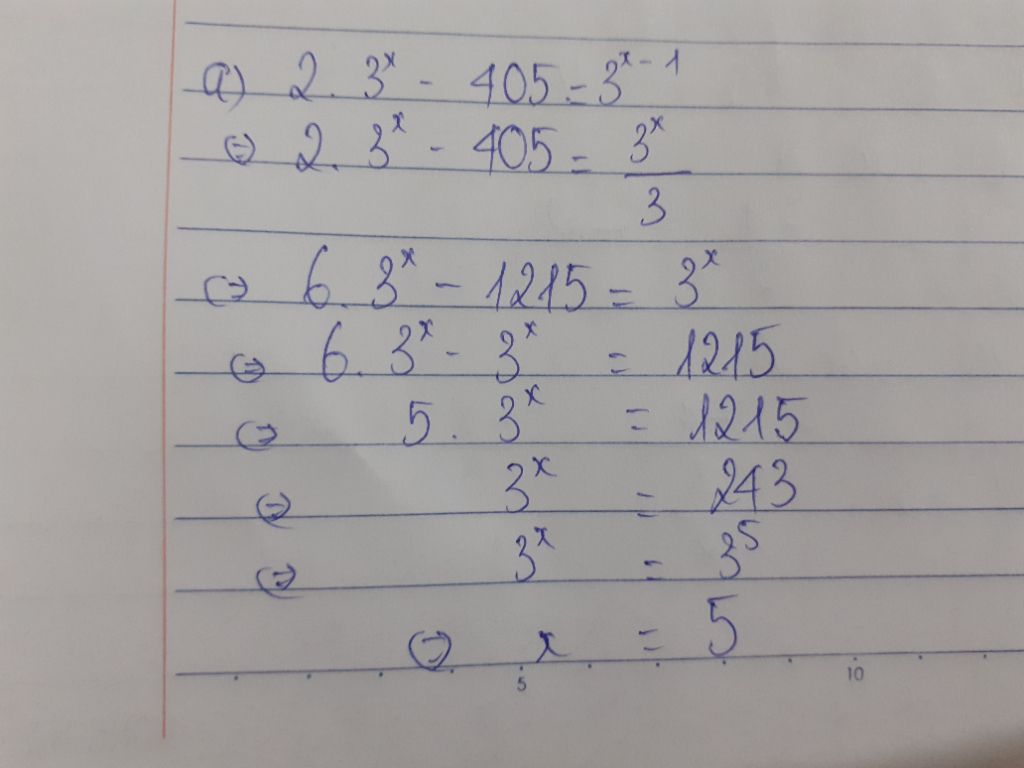 a) 2. 3^x - 405 = 3^{x-1}
⇔ 2. 3^x - 405 = \frac{3^x}{3}
⇔ 6. 3^x - 1215 = 3^x
⇔ 6. 3^x - 3^x = 1215
⇔ 5. 3^x = 1215
⇔ 3^x = 243
⇔ 3^x = 3^5
⇔ x = 5
5 10